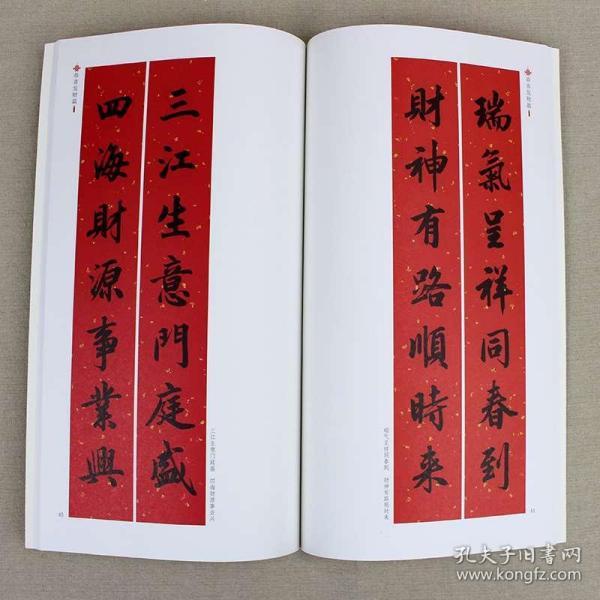 恭喜发财篇
瑞氣呈祥同春到
財神有路順時來
瑞气呈祥同春到 财神有路顺时来
恭喜发财篇
三江生意門庭盛
四海財源事業興
三江生意门庭盛 四海财源事业兴
孔夫子旧书网
www.kongfz.com